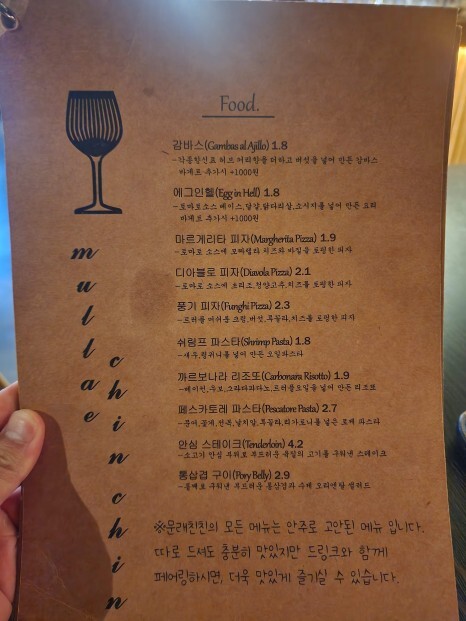 Food.
감바스(Gambas al Ajillo) 1.8
-각종향신료 허브 마리월을 더하고 버섯을 넣어 만든 감바스
바게트 추가시 +1000원
에그인헬(Egg in Hell) 1.8
-토마토소스 베이스,달걀,닭다리살,소시지를 넣어 만든 요리
바게트 추가시 +1000원
마르게리타 피자(Margherita Pizza) 1.9
-토마토 소스에 모짜렐라 치즈와 바질을 토핑한 피자
디아블로 피자(Diavola Pizza) 2.1
-토마토 소스에 초리조,청양고추,치즈를 토핑한 피자
풍기 피자(Funghi Pizza) 2.3
-트러플 머쉬룸 크림,버섯,루꼴라,치즈를 토핑한 피자
쉬림프 파스타(Shrimp Pasta) 1.8
-새우,쥬키니를 넣어 만든 오일파스타
까르보나라 리조또(Carbonara Risotto) 1.9
-베이컨,수란,그라나파다노,트러플오일을 넣어 만든 리조또
페스카토레 파스타(Pescatore Pasta) 2.7
-문어,꽃게,전복,날치알,루꼴라,리가토니를 넣은 로제 파스타
안심 스테이크(Tenderloin) 4.2
-소고기 안심 부위로 부드러운 육질의 고기를 구워낸 스테이크
통삼겹 구이(Pory Belly) 2.9
-통째로 구워낸 부드러운 통삼겹과 수제 오리엔탈 샐러드
※문래친친의 모든 메뉴는 안주로 고안된 메뉴 입니다.
따로 드셔도 충분히 맛있지만 드링크와 함께
페어링하시면, 더욱 맛있게 즐기실 수 있습니다.
mullae
chinchin